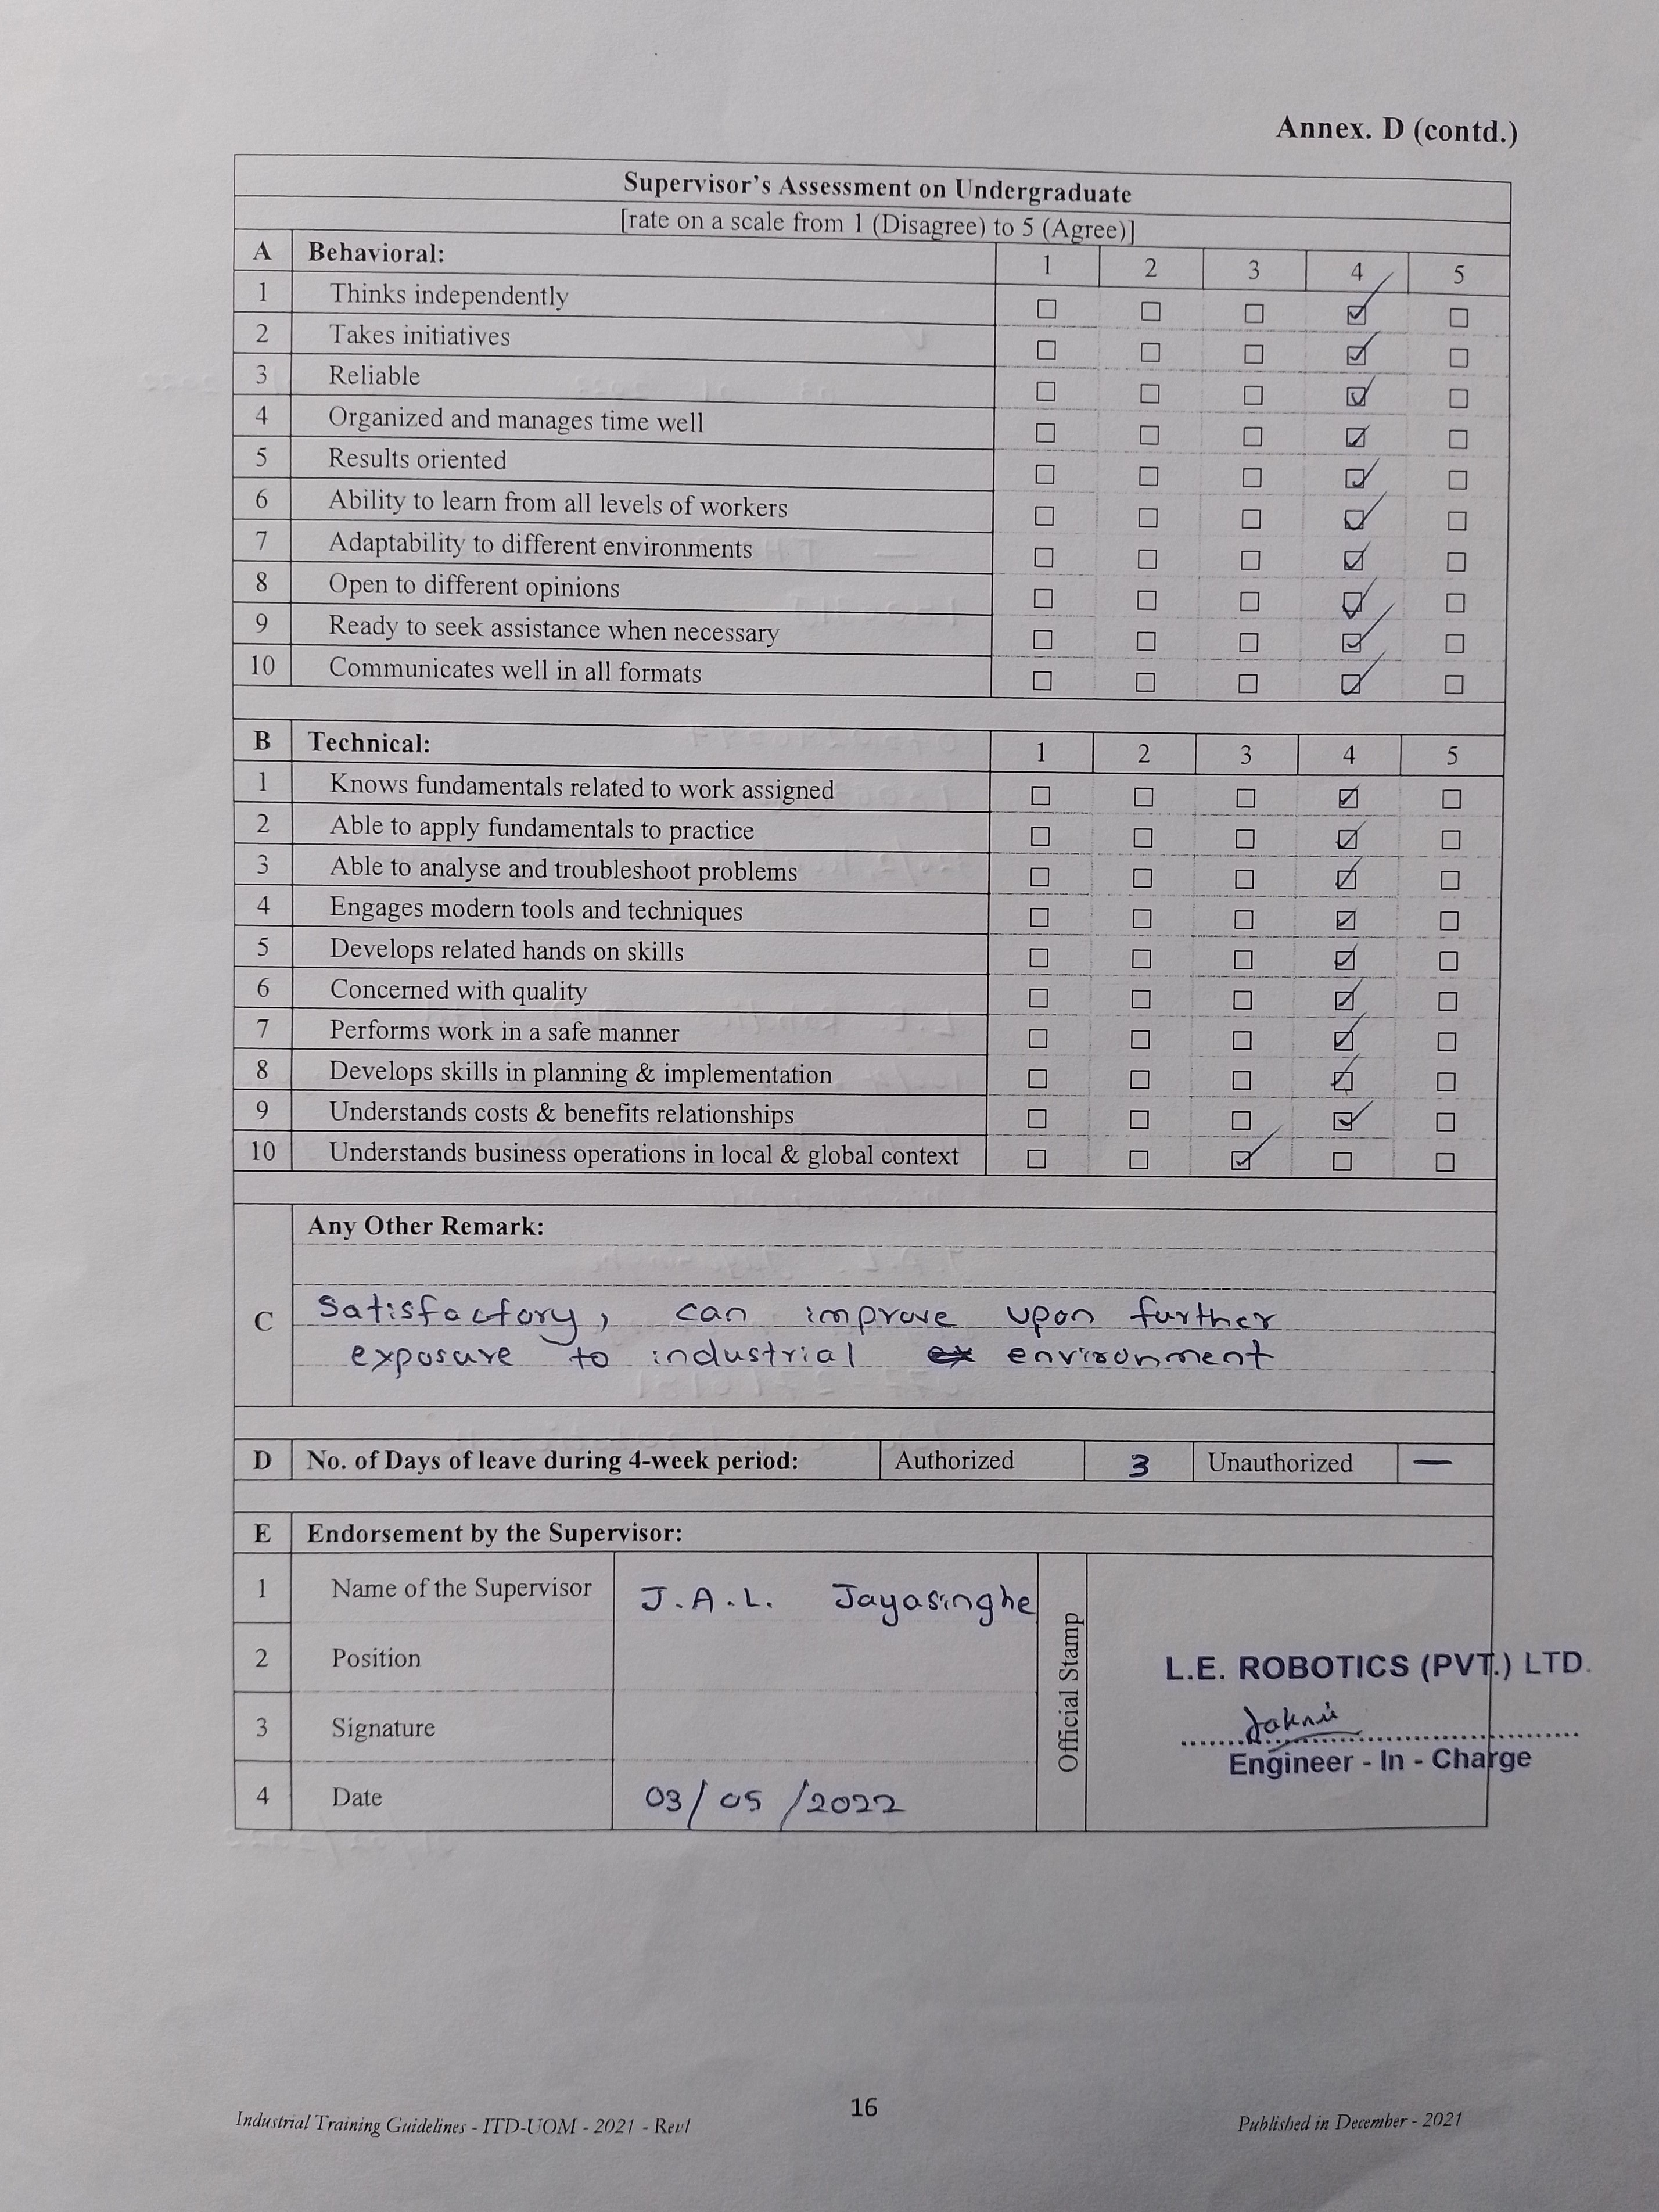 Annex. D (contd.)
Supervisor's Assessment on Undergraduate
[rate on a scale from 1 (Disagree) to 5 (Agree)]
A Behavioral: 1 2 3 4 5
1 Thinks independently
2 Takes initiatives
3 Reliable
4 Organized and manages time well
5 Results oriented
6 Ability to learn from all levels of workers
7 Adaptability to different environments
8 Open to different opinions
9 Ready to seek assistance when necessary
10 Communicates well in all formats
B Technical: 1 2 3 4 5
1 Knows fundamentals related to work assigned
2 Able to apply fundamentals to practice
3 Able to analyse and troubleshoot problems
4 Engages modern tools and techniques
5 Develops related hands on skills
6 Concerned with quality
7 Performs work in a safe manner
8 Develops skills in planning & implementation
9 Understands costs & benefits relationships
10 Understands business operations in local & global context
Any Other Remark:
C
Satisfactory, can improve upon further
exposure to industrial environment
D No. of Days of leave during 4-week period: Authorized 3 Unauthorized —
E Endorsement by the Supervisor:
1 Name of the Supervisor J.A.L. Jayasinghe
2 Position
3 Signature
4 Date 03/05/2022
Official Stamp
L.E. ROBOTICS (PVT.) LTD.
Engineer - In - Charge
16
Industrial Training Guidelines - ITD-UOM - 2021 - Rev1
Published in December - 2021